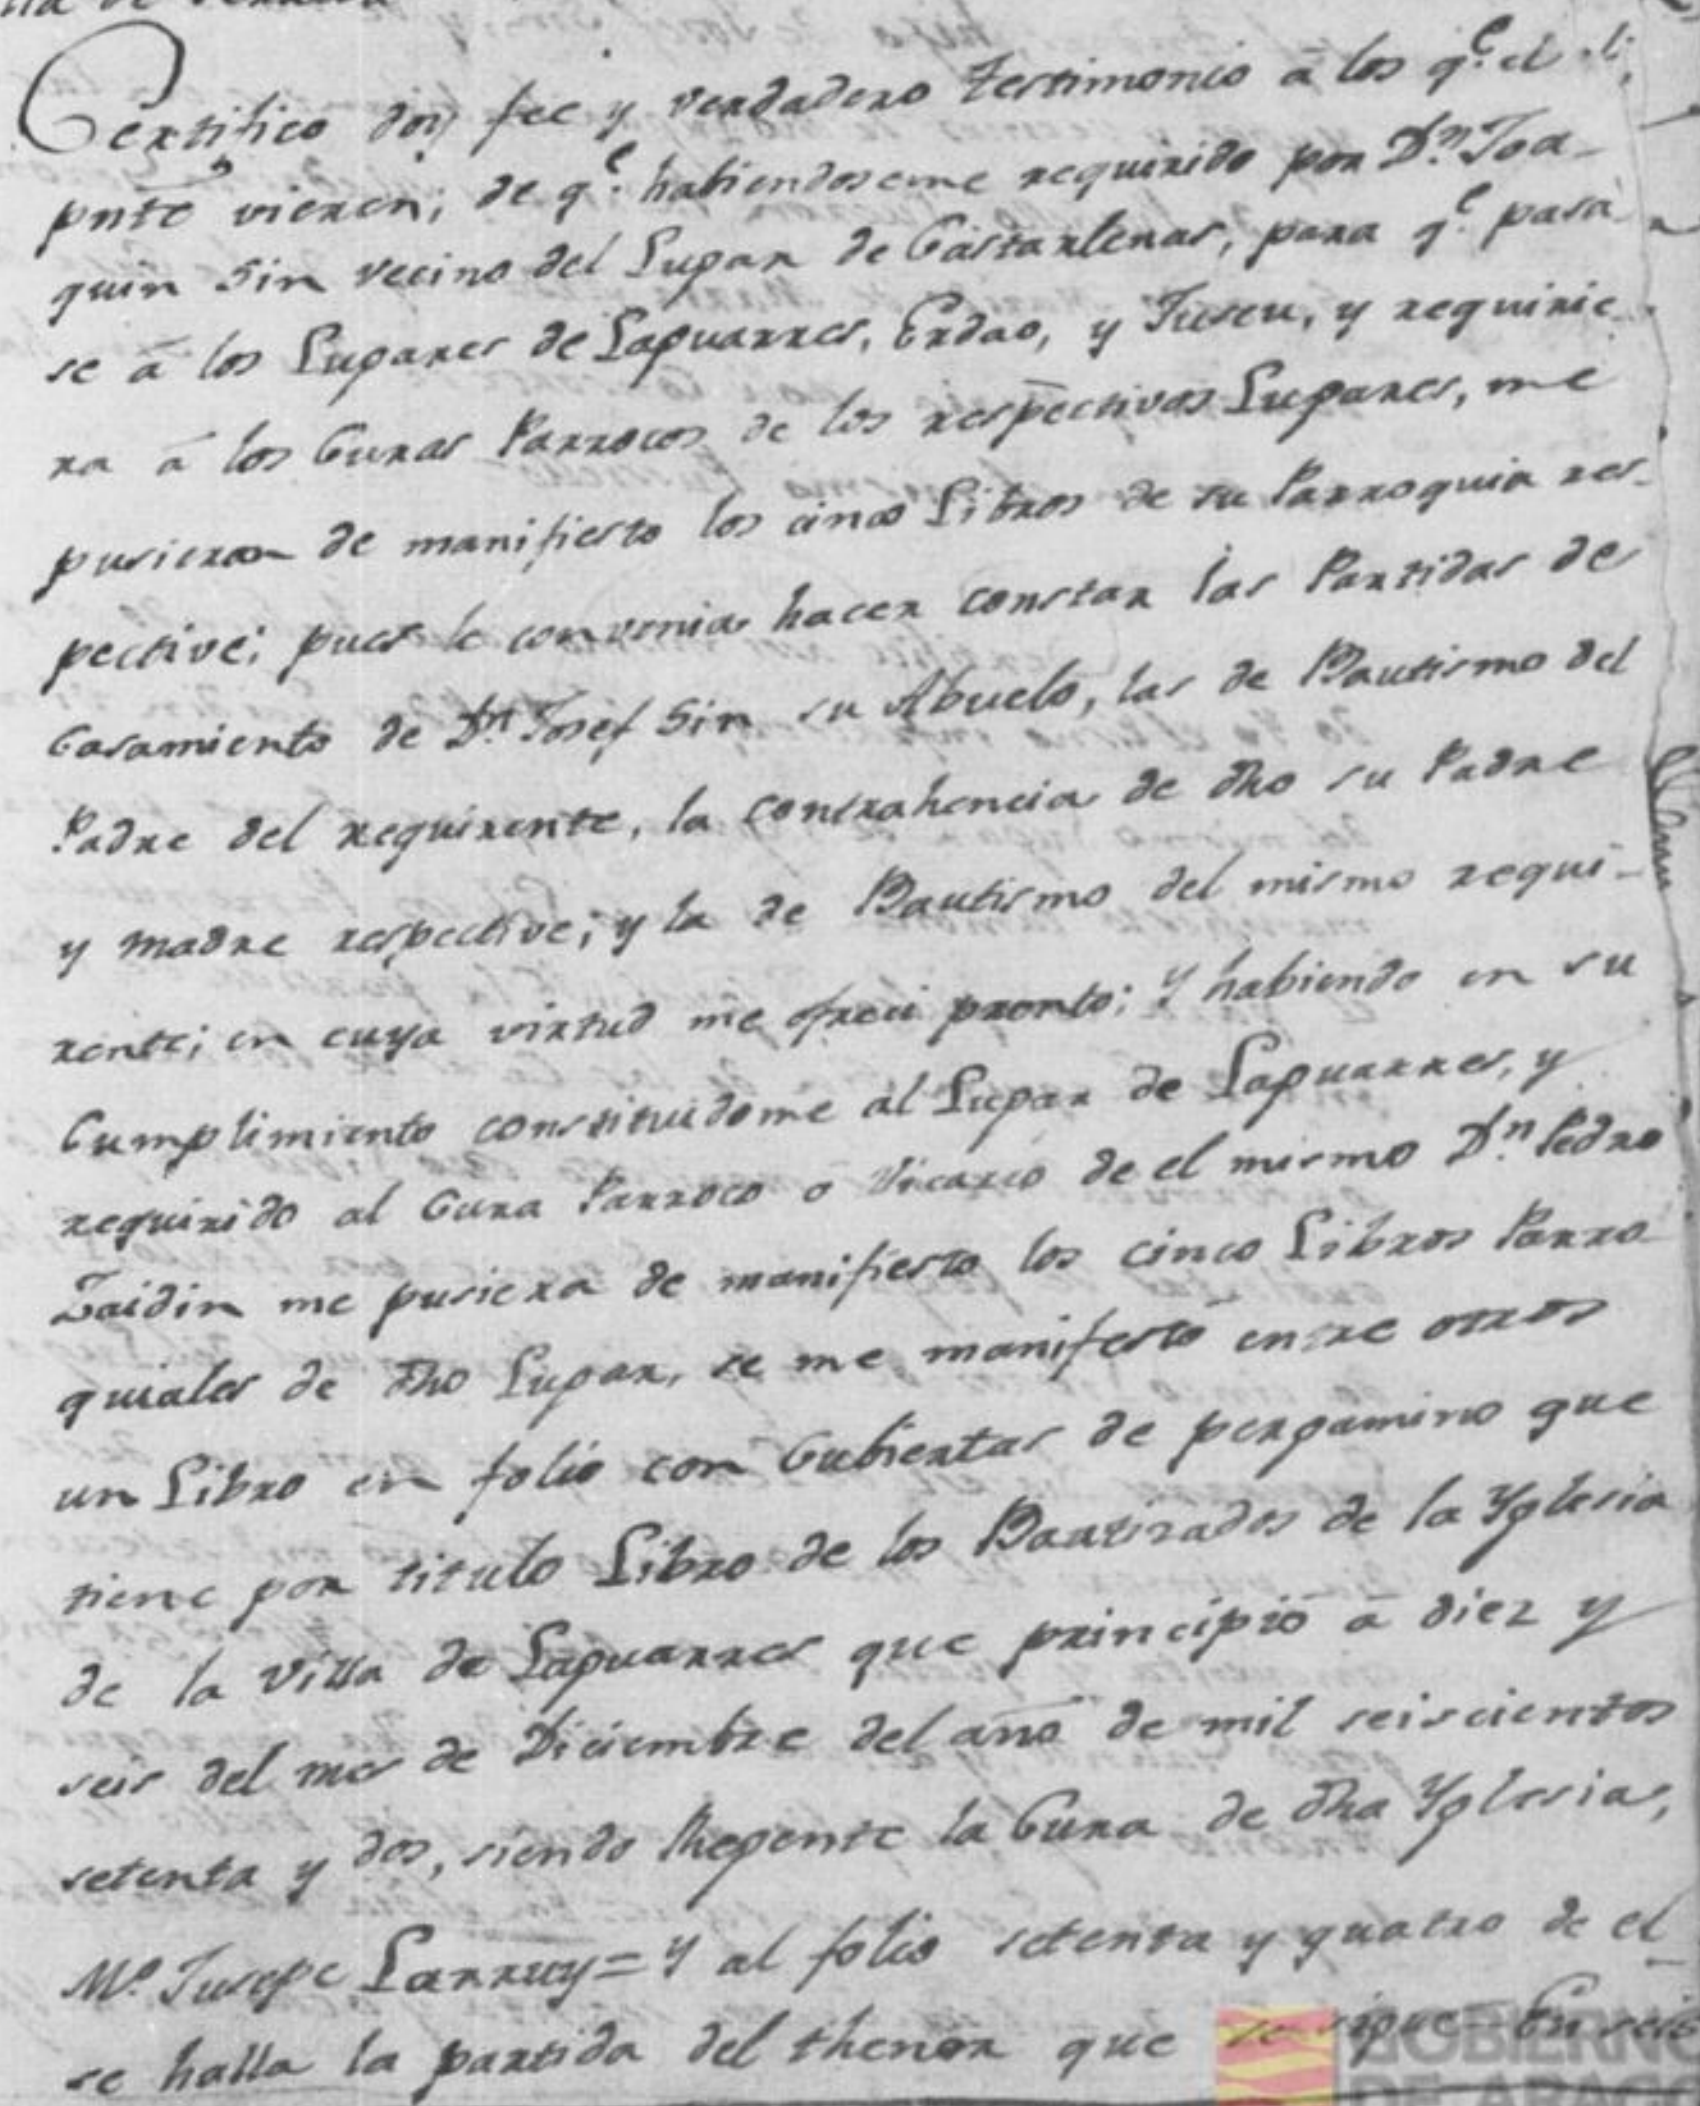 Certifico doy fee y verdadero testimonio â los q.e el
pnte vieren; de q.e habiendoseme requirido por D.n Joa-
quin Sin vecino del Lugar de Castarlenas, para q.e pasa
se â los Lugares de Laguarres, Erdao, y Juseu, y requirie
ra â los Curas Parrocos de los respectivos Lugares, me
pusieran de manifiesto los cinco Libros de su Parroquia res-
pective; pues le convenia hacer constar las Partidas de
Casamiento de D.n Josef Sin su Abuelo, las de Bautismo del
Padre del requirente, la contrahencia de dho su Padre
y madre respective; y la de Bautismo del mismo requi-
rente; en cuya virtud me ofreci pronto; Y habiendo en su
Cumplimiento constituidome al Lugar de Laguarres, y
requirido al Cura Parroco o Vicario de el mismo D.n Pedro
Zaidin me pusiera de manifiesto los cinco Libros Parro
quiales de dho Lugar, se me manifestó entre otros
un Libro en folio con Cubiertas de pergamino que
tiene por titulo Libro de los Bautizados de la Yglesia
de la Villa de Laguarres que principió â diez y
seis del mes de Diciembre del año de mil seiscientos
setenta y dos, siendo Regente la Cura de dha Yglesia,
M.o Jusepe Larruy = Y al folio setenta y quatro de el
se halla la partida del thenor que se sigue = En seis
GOBIERNO
DE ARAGON